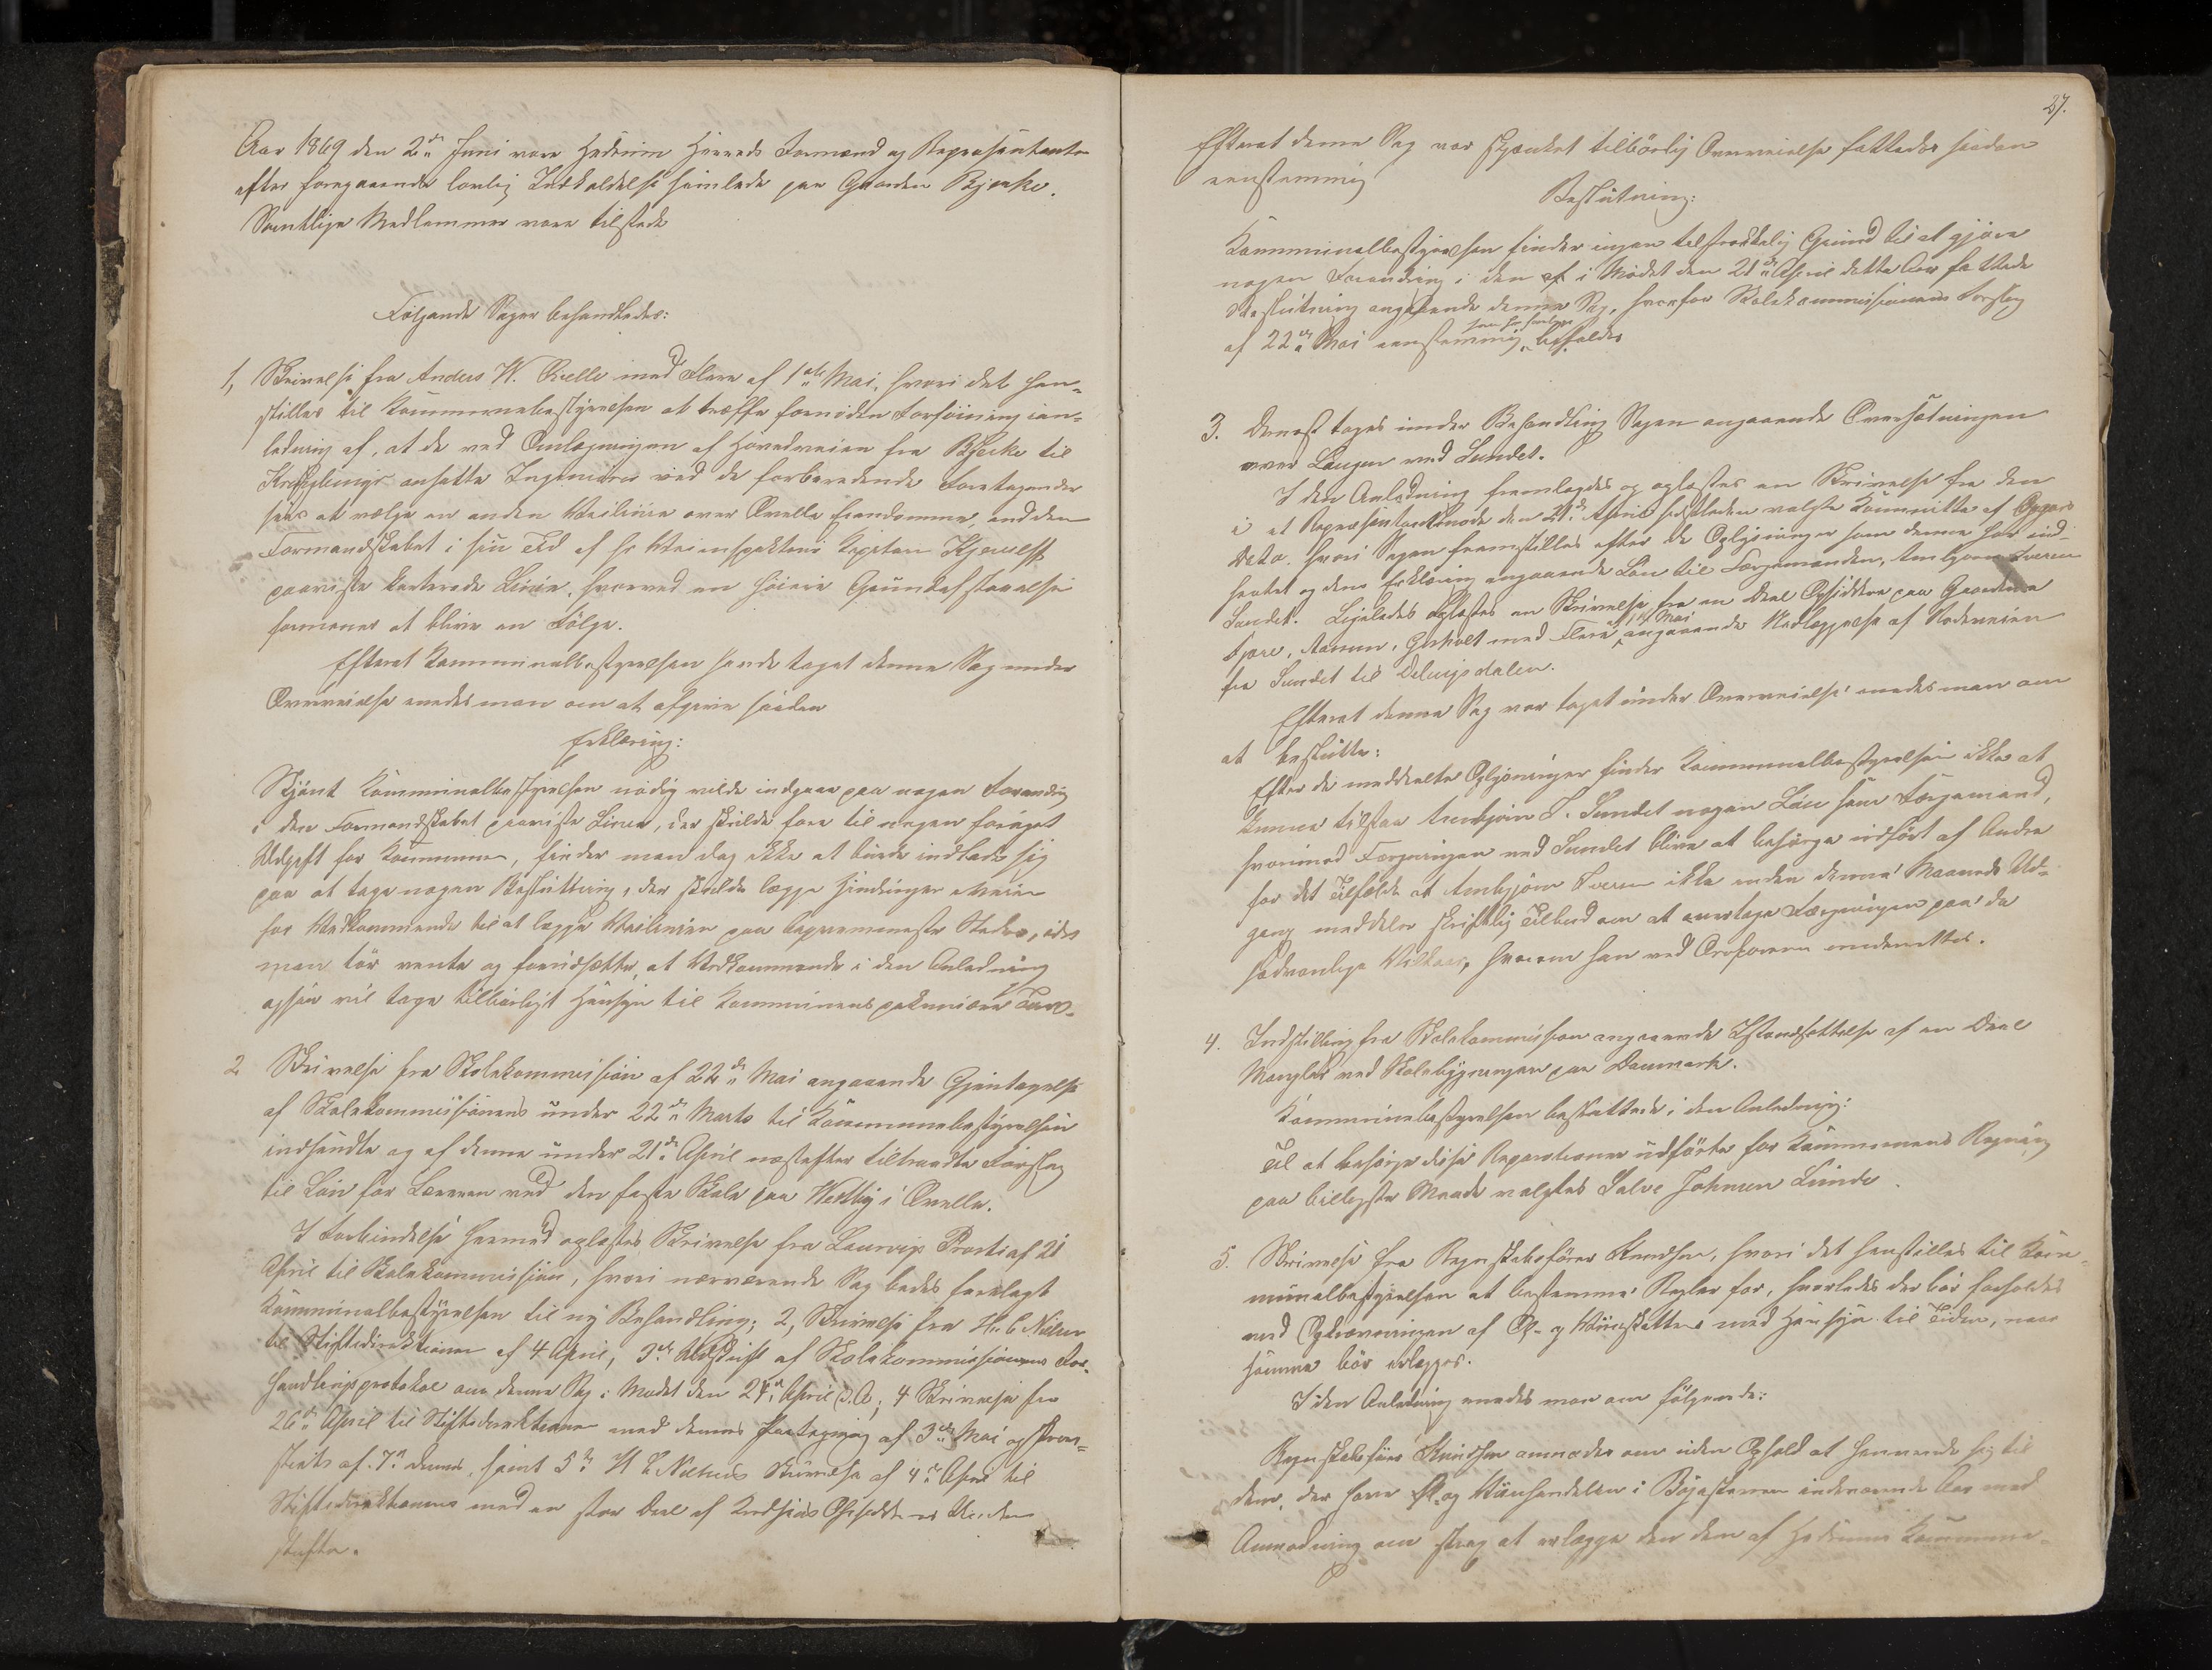 Aar 1869 den 2den Juni vare Hedrum Herreds Formænd og Repræsentanter
efter foregaaende lovlig Indkaldelse samlede paa Gaarden Bjerke.
Samtlige Medlemmer vare tilstede
Følgende Sager behandledes:
1, Skrivelse fra Anders W. Qvelle med Flere af 1ste Mai, hvori det hen-
stilles til Kommunebestyrelsen at træffe fornøden Forføining i an-
ledning af, at de ved Omlægningen af Hovedveien fra Bjerke til
ansatte Ingeniører ved de forberedende Foretagender
sees at vælge en anden Veilinie over Qvelle Eiendomme, end den
Formandskabet i sin Tid af Hr Veiinspekteur Kaptain Kjerulf
paaviste Linie, hvorved en høiere Grundafstaaelse
formenes at blive en Følge.
Efterat Kommunalbestyrelsen havde taget denne Sag under
Overveielse enedes man om at afgive saadan
Erklæring:
Skjønt Kommunalbestyrelsen nødig vilde indgaae paa nogen Forandring
i den Formandskabet paaviste Linie, der skulde føre til nogen forøget
Udgift for Kommunen, finder man dog ikke at burde indlade sig
paa at tage nogen Beslutning, der skulde lægge Hindringer i Veien
for Vedkommende til at lægge Veilinien paa beqvemmeste Steder, idet
man tør vente og forudsætte, at Vedkommende i den Anledning
ogsaa vil tage tilbørligt Hensyn til Kommunens pekuniære Tarv.
2 Skrivelse fra Skolekommission af 22de Mai angaaende Gjentagelse
af Skolekommissionens under 22de Marts til Kommunebestyrelsen
indsendte og af denne under 21de April næstefter Forslag
til Løn for Læreren ved den faste Skole paa Vestby i Qvelle.
I Forbindelse hermed oplæstes Skrivelse fra Laurvigs Provsti af 21
April til Skolekommission, hvori nærværende Sag bedes forelagt
Kommunalbestyrelsen til ny Behandling; 2, Skrivelse fra H. C. Nilsen
til Stiftsdirektionen af 4 April, 3de Udskrift af Skolekommissionens For-
handlingsprotokol om denne Sag i Mødet den 24de April d.A; 4 Skrivelse fra
26de April til Stiftsdirektionen med dennes Paategning af 3die Mai og Prov-
stiets af 7de dennes, samt 5te H C Nielsens Skrivelse af 4de April til
Stiftsdirektionen med en stor Deel af Opsiddernes Under-
skrifter.
27.
Efterat denne Sag var skjænket tilbørlig Overveielse fattedes saadan
eenstemmig
Beslutning:
Kommunalbestyrelsen finder ingen tilstrækkelig Grund til at gjøre
nogen Forandring i den i Mødet den 21de April dette Aar fattede
Beslutning angaaende denne Sag, hvorfor Skolekommissionens Forslag
af 22de Mai eenstemmig
3. Dernæst toges under Behandling Sagen angaaende Oversætningen
over Laugen ved Sundet.
I den Anledning fremlagdes og oplæstes en Skrivelse fra den
i et Repræsentantmøde den 21de April sidstleden valgte Kommitte af
Dato. hvori Sagen fremstilles efter de Oplysninger som denne har ind-
hentet og dens Erklæring angaaende Løn til Færgemanden, Ambjørn Iversen
Sundet. Ligeledes oplæstes en Skrivelse fra en Deel Opsiddere paa Gaardene
Fjære, Aarum, Gjerholt med Flere af 14 Mai angaaende Nedlæggelse af Rodeveien
fra Sundet til Delingsdalen.
Efterat denne Sag var taget under Overveielse enedes man om
at beslutte:
Efter de meddeelte Oplysninger finder Kommunalbestyrelsen ikke at
kunne tilstaa Ambjørn I. Sundet nogen Løn som Færgemand,
hvorimod Færgningen ved Sundet bliver at besørge udført af Andre
for det Tilfælde at Ambjørn Iversen ikke inden denne Maaneds Ud-
gang meddeler skriftlig Tilbud om at overtage Færgningen paa de
sædvanlige Vilkaar, hvorom han ved Ordføreren underrettes.
4. Indstilling fra Skolekommission angaaende Istandsættelse af en Deel
Mangler ved Skolebygningen paa Danmark.
Kommunebestyrelsen besluttede i den Anledning:
Til at besørge disse Reparationer udførte for Kommunens Regning
paa billigste Maade valgtes Salve Johnsen Lunde.
5. Skrivelse fra Regnskabsfører Knudsen, hvori det henstilles til Kom-
munalbestyrelsen at bestemme Regler for, hvorledes der bør forholdes
ved Opkrævningen af Øl- og Viinskatten med Hensyn til Tiden, naar
samme bør erlægges.
I den Anledning enedes man om følgende:
Regnskabsfører Knudsen anmodes om uden Ophold at henvende sig til
dem, der have Øl- og Viinhandelen i Bøgeskoven indeværende Aar med
Anmodning om strax at erlægge den dem af Hedrums Kommune-